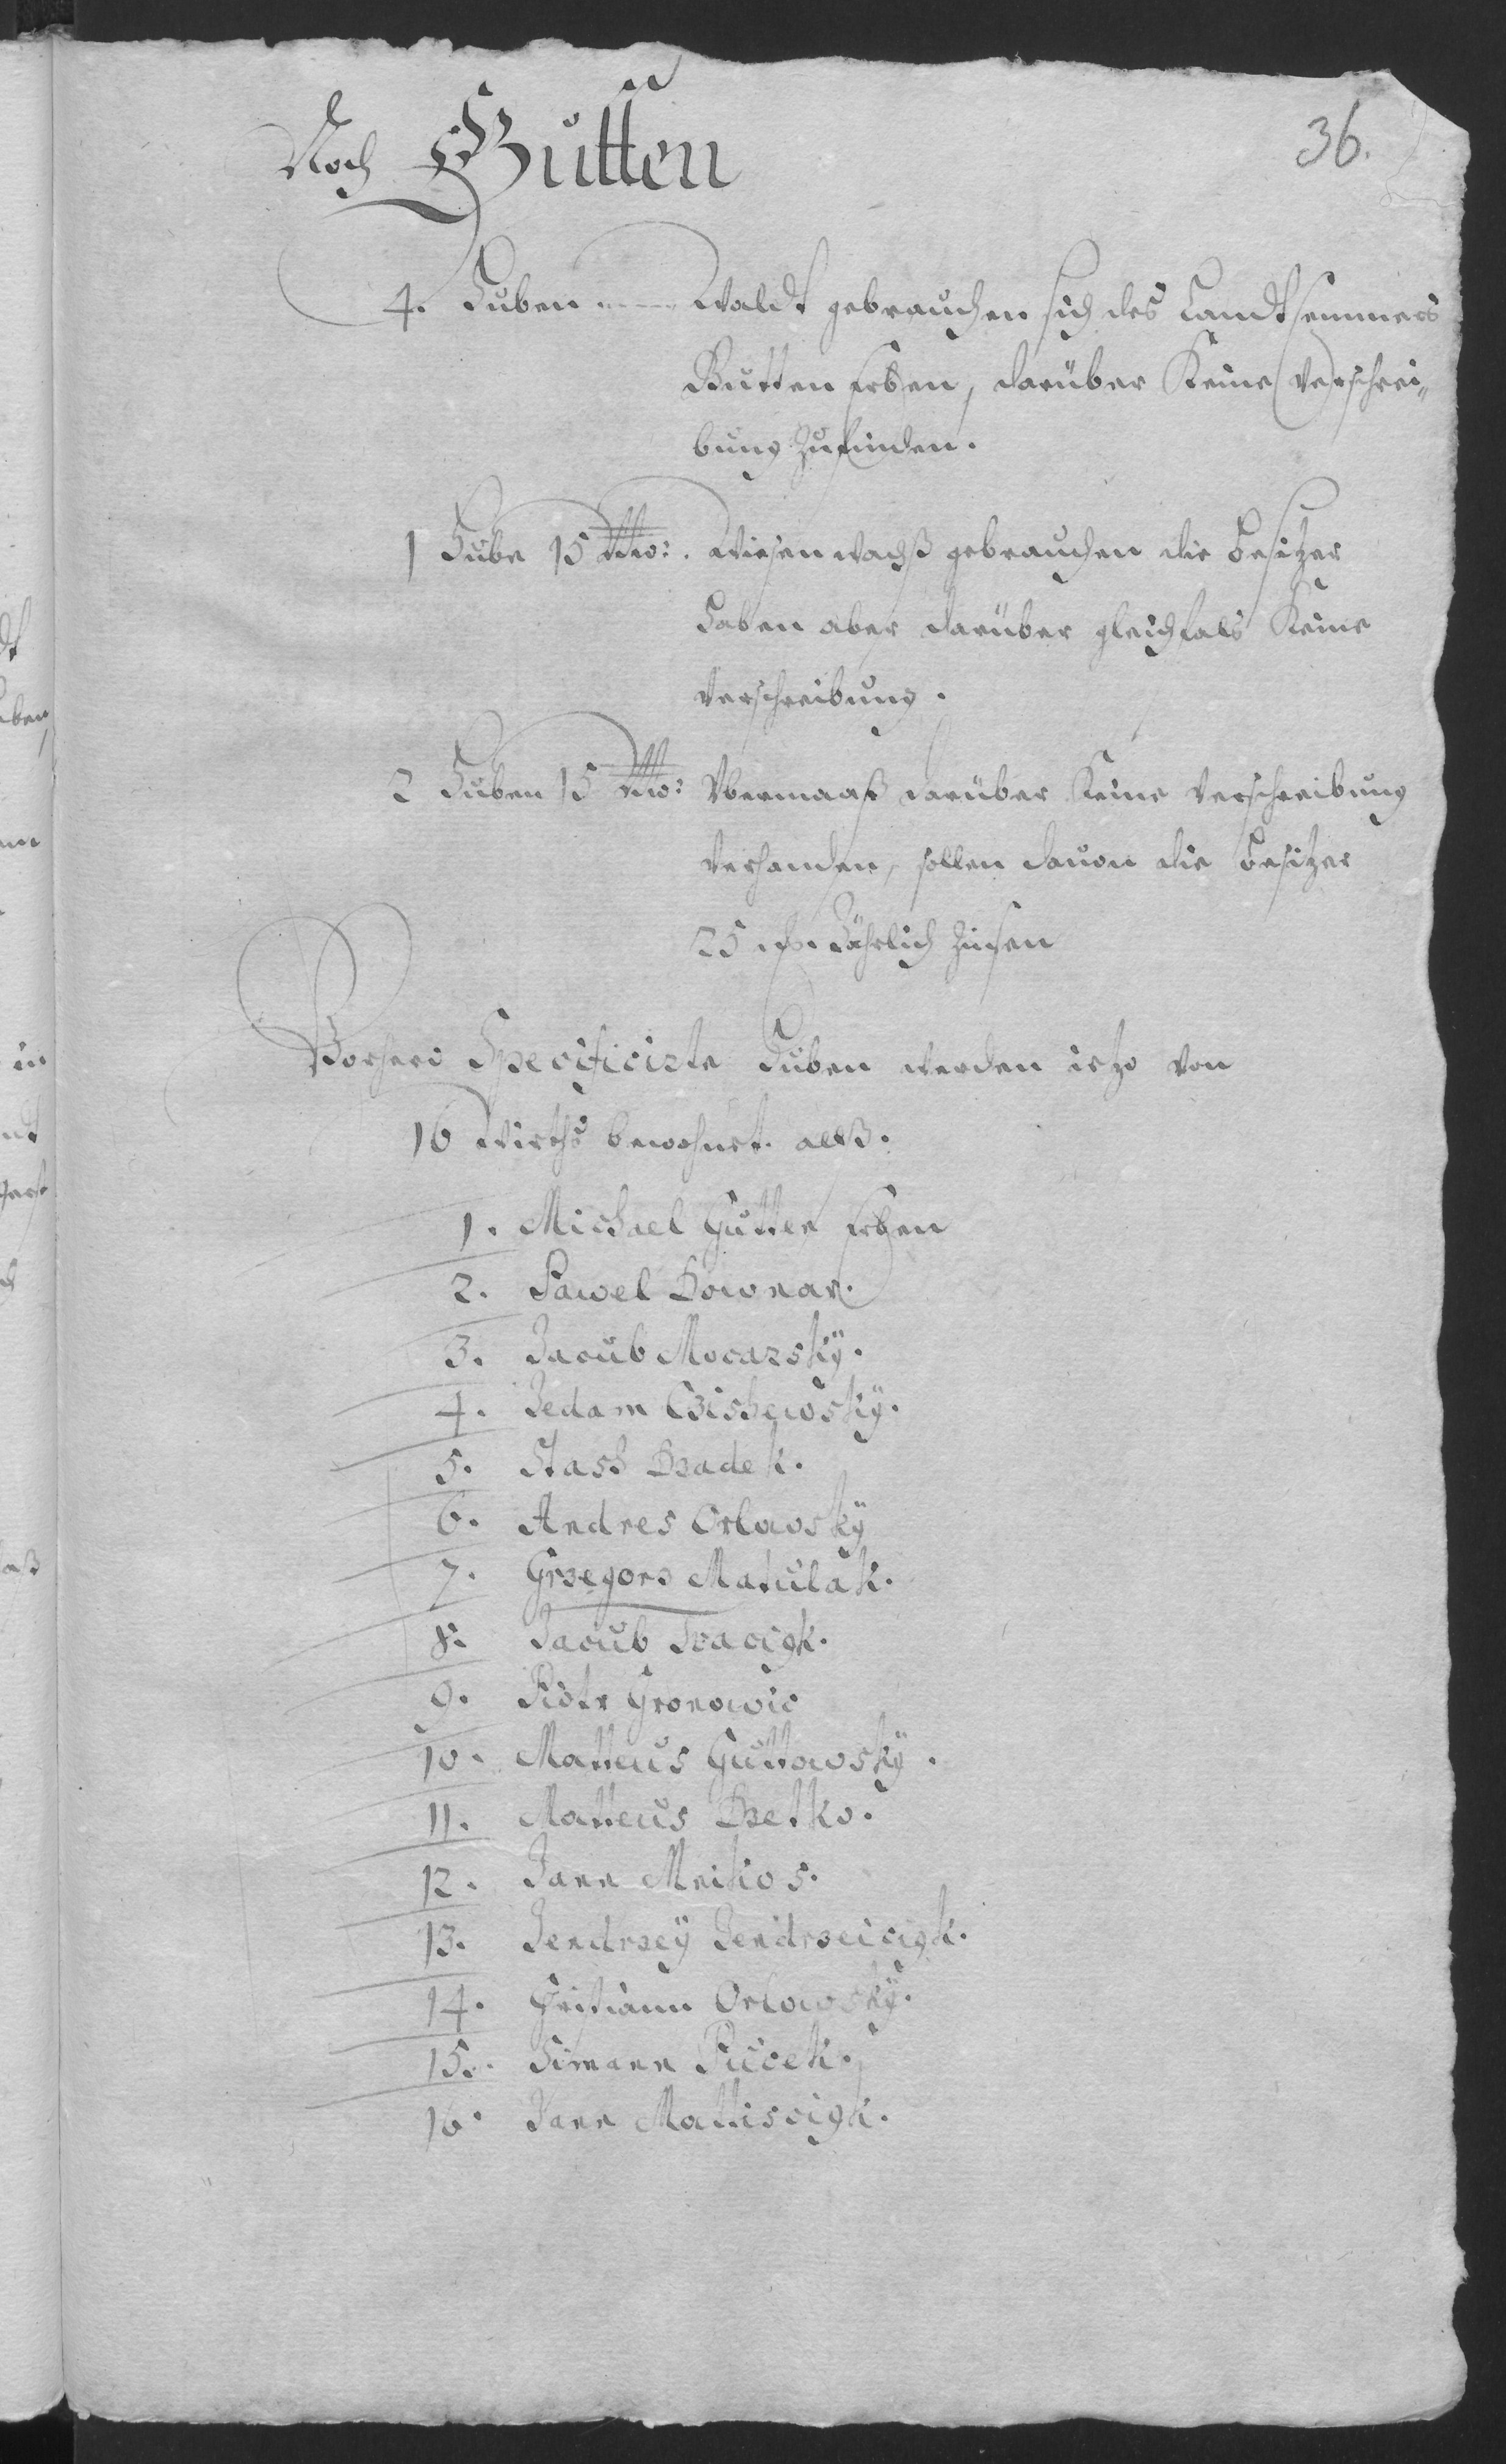 36.
Noch Gutten
4. Huben ---- Waldt gebrauchen sich des Landtsemmers
Gutten Erben, darüber Keine Verschrei„
bung zufinden.
1 Hube 15 Mo: Wiesenwachß gebrauchen die Besitzer
Haben aber darüber gleichfals Keine
Verschreibung.
2 Huben 15 Mo: Übermaaß darüber Keine Verschreibung
Verhanden, sollen dauon die Besitzer
25 Jährlich Zinsen
Vorhero Specificirte Huben werden ietzo von
16 Wirths bewohnet. alß.
1. Michael Gutten Erben
2. Pawel Downar.
3. Jacub Mocarskÿ.
4. Jedam Czishewskÿ.
5. Stash Bzadek.
6. Andres Orlowskÿ
7. Grzegorz Matulak.
8. Jacub
9. Piotr Gronowic
10. Matteus Guttowskÿ.
11. Matteus Bzetko.
12. Jann Meikos.
13. Jendrzeÿ Jendrzeicigk.
14. Cristiann Orlowskÿ.
15. Simann Piecek.
16. Jann Mattiscigk.